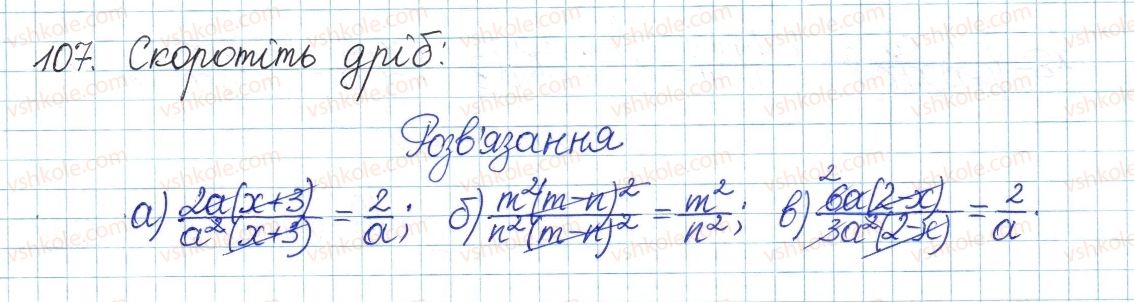 107. Скоротіть дріб:
Розв'язання
а) 2a(x+3)/a²(x+3) = 2/a; б) m²(m-n)²/n²(m-n)² = m²/n²; в) ²6a(2-x)/3a²(2-x) = 2/a.